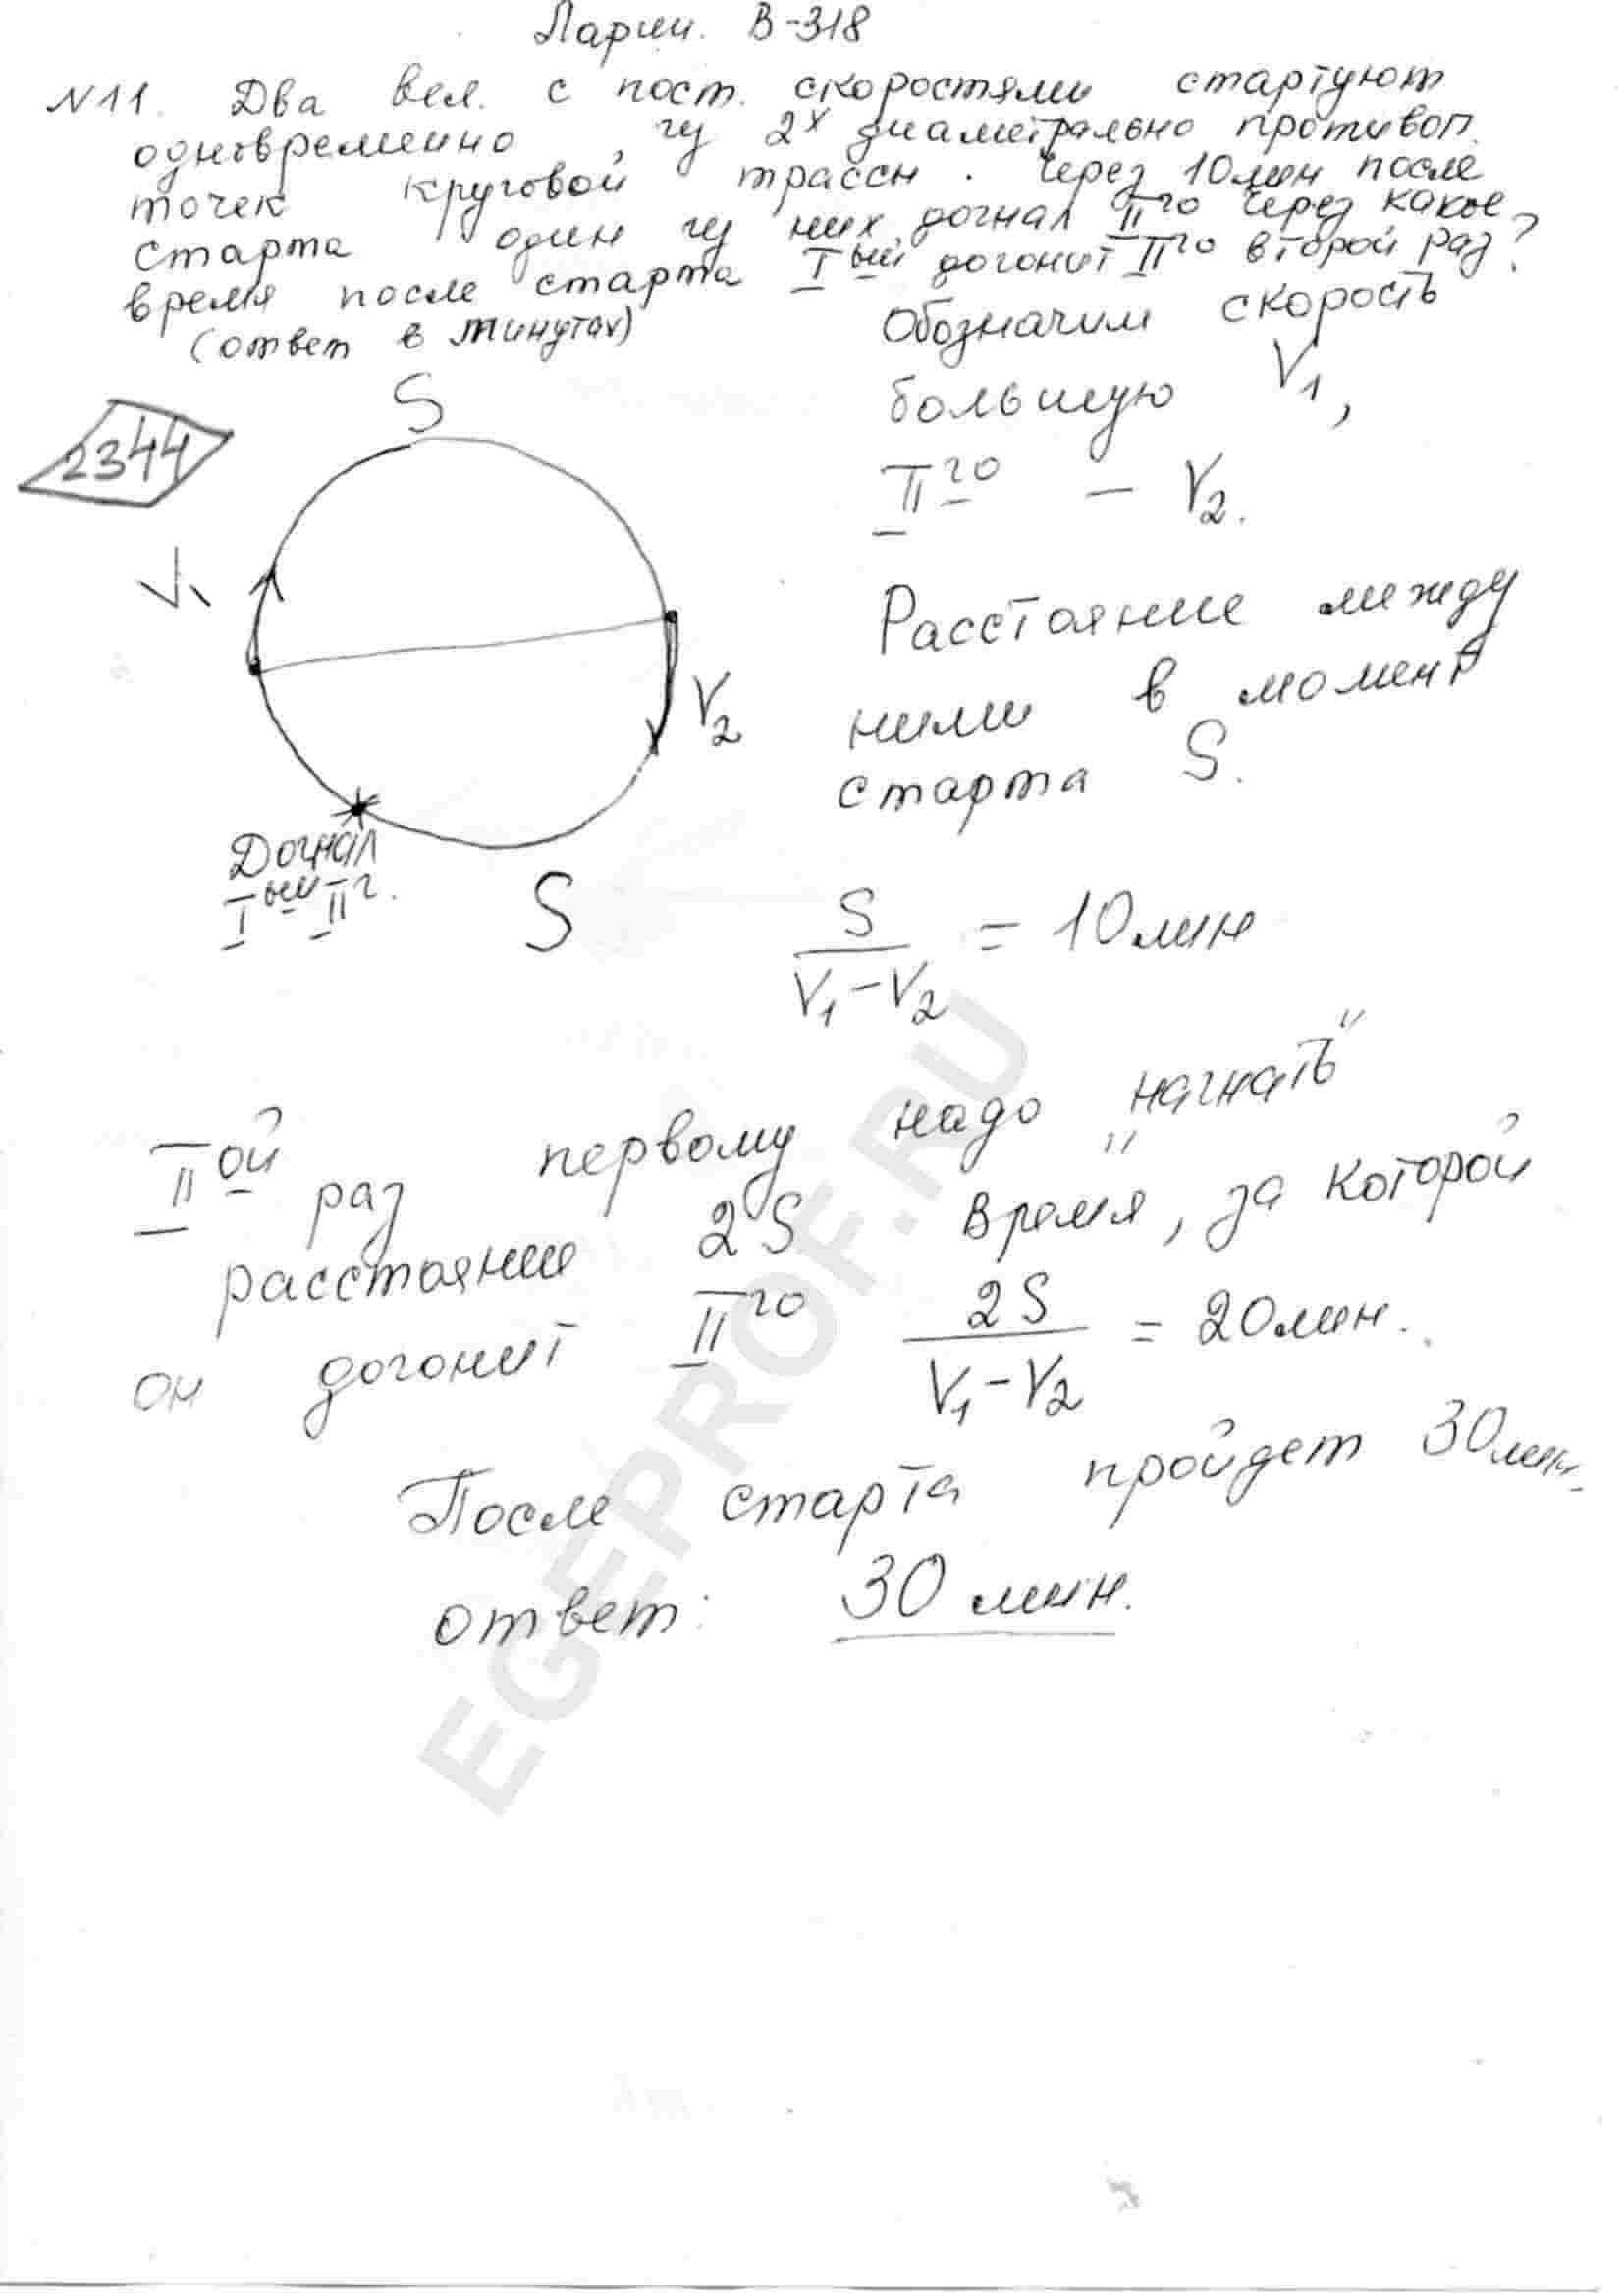 Ларин. В-318
№11. Два вел. с пост. скоростями стартуют
одновременно, из 2х диаметрально противоп.
точек круговой трассы. Через 10 мин после
старта один из них догнал IIго Через какое
время после старта Iый догонит IIго второй раз?
(ответ в минутах)
Обозначим скорость
большую V1,
IIго - V2.
2344
S
V1
V2
Расстояние между
ними в момент
старта S.
Догнал
Iый IIг.
S
S/(V1-V2) = 10 мин
IIой раз первому надо "нагнать"
расстояние 2S время, за которой
он догонит IIго 2S/(V1-V2) = 20 мин.
После старта пройдет 30 мин.
ответ: 30 мин.
EGEPROF.RU